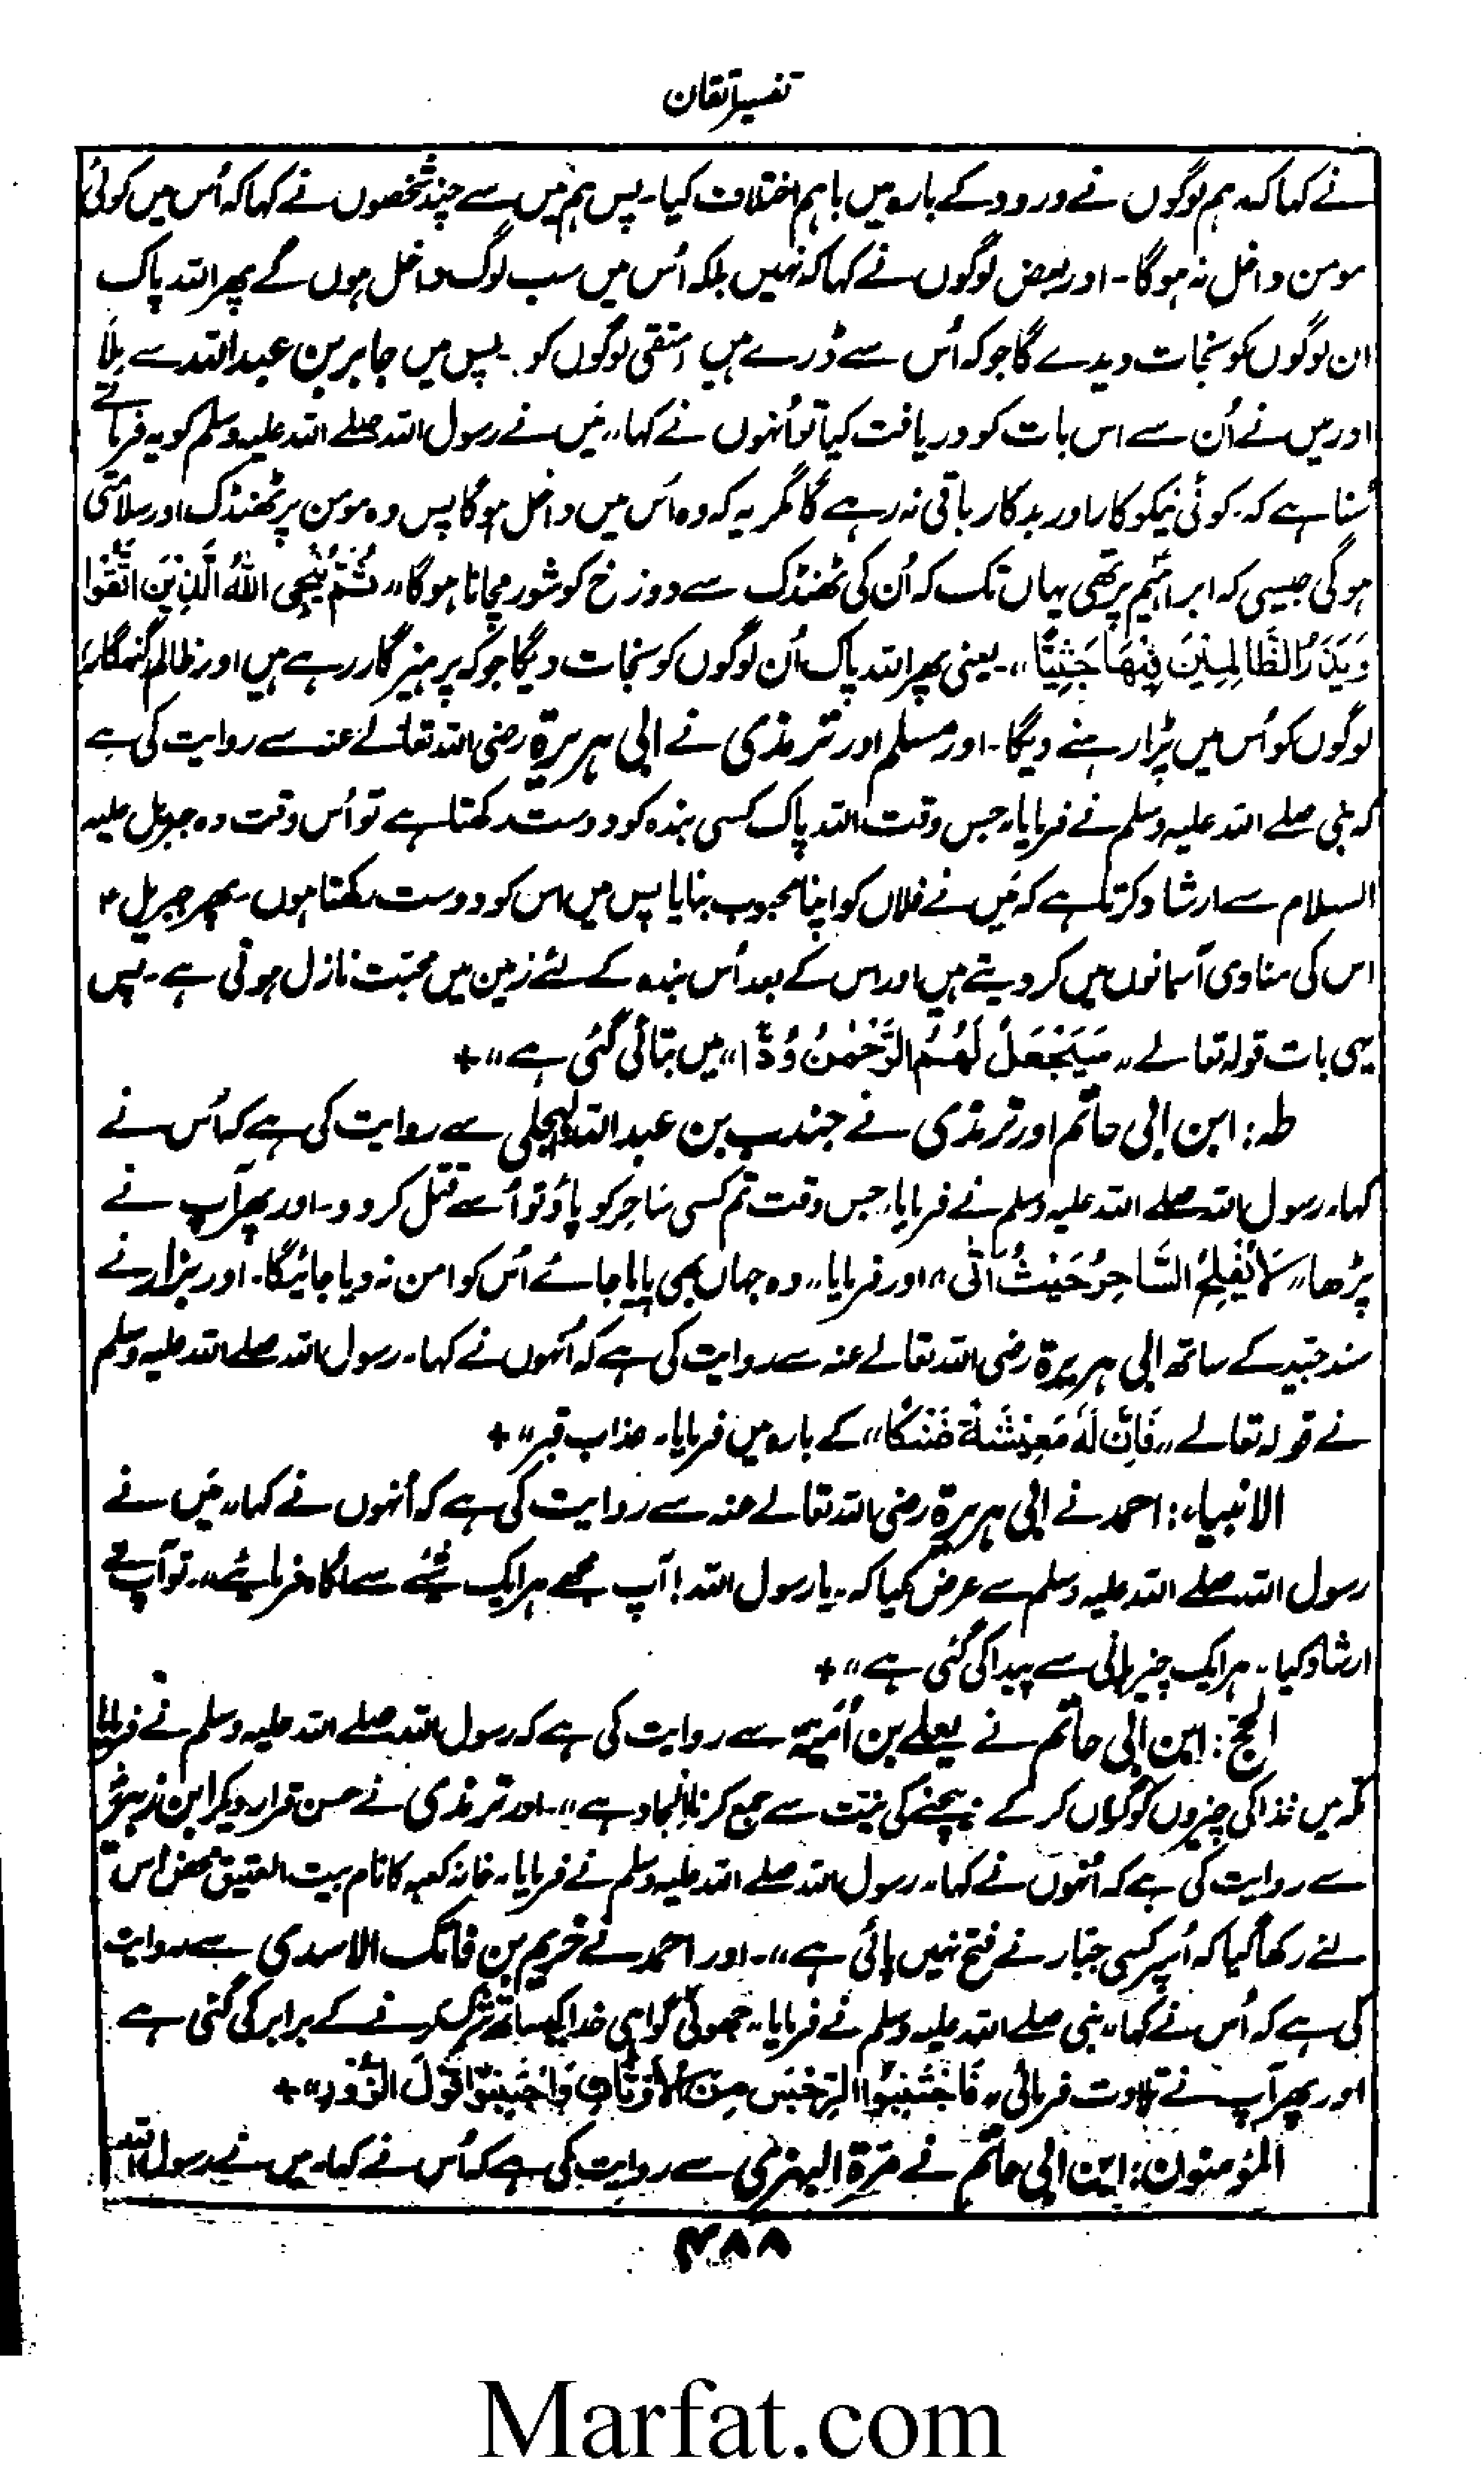 تفسیر اتقان
نے کہا کہ ہم لوگوں نے ورود کے بارہ میں باہم اختلاف کیا۔ پس ہم میں سے چند شخصوں نے کہا کہ اُس میں کوئی
مومن داخل نہ ہوگا۔ اور بعض لوگوں نے کہا کہ نہیں بلکہ اُس میں سب لوگ داخل ہوں گے پھر اللہ پاک
ان لوگوں کو نجات دیدے گا جو کہ اُس سے ڈرے ہیں (متقی لوگوں کو۔ پس میں جابر بن عبداللہ سے ملا
اور میں نے اُن سے اس بات کو دریافت کیا تو اُنہوں نے کہا "میں نے رسول اللہ صلے اللہ علیہ وسلم کو یہ فرماتے
سُنا ہے کہ۔ کوئی نیکوکار اور بدکار باقی نہ رہے گا مگر یہ کہ وہ اس میں داخل ہوگا پس وہ مومن پر ٹھنڈک اور سلامتی
ہوگی جیسی کہ ابراہیم پر تھی یہاں تک کہ اُن کی ٹھنڈک سے دوزخ کو شور مچانا ہوگا" ثُمَّ یُنَجِّی اللّٰہُ الَّذِیْنَ اتَّقَوْا
وَیَذَرُ الظَّالِمِیْنَ فِیْهَا جِثِیًّا"۔ یعنی پھر اللہ پاک اُن لوگوں کو نجات دیگا جو کہ پرہیزگار رہے ہیں اور ظالم (گنہگار)
لوگوں کو اُس میں پڑا رہنے دیگا۔ اور مسلم اور ترمذی نے ابی ہریرۃ رضی اللہ تعالےٰ عنہ سے روایت کی ہے
کہ نبی صلے اللہ علیہ وسلم نے فرمایا۔ جس وقت اللہ پاک کسی بندہ کو دوست رکھتا ہے تو اُس وقت وہ جبریل علیہ
السلام سے ارشاد کرتا ہے کہ میں نے فلاں کو اپنا محبوب بنایا پس میں اس کو دوست رکھتا ہوں۔ پھر جبریل ؑ
اس کی منادی آسمانوں میں کر دیتے ہیں اور اس کے بعد اُس بندہ کے لئے زمین میں محبت نازل ہوتی ہے۔ پس
یہی بات قولہ تعالےٰ "سَیَجْعَلُ لَهُمُ الرَّحْمٰنُ وُدًّا" میں بتائی گئی ہے" +
طہ: ابن ابی حاتم اور ترمذی نے جندب بن عبداللہ البجلی سے روایت کی ہے کہ اُس نے
کہا۔ رسول اللہ صلے اللہ علیہ وسلم نے فرمایا۔ جس وقت تم کسی ساحر کو پاؤ تو اُسے قتل کر دو۔ اور پھر آپ نے
پڑھا "لَا یُفْلِحُ السَّاحِرُ حَیْثُ اَتٰی" اور فرمایا "وہ جہاں بھی پایا جائے اُس کو امن نہ دیا جائیگا۔ اور بزار نے
سند جید کے ساتھ ابی ہریرۃ رضی اللہ تعالےٰ عنہ سے روایت کی ہے کہ اُنہوں نے کہا۔ رسول اللہ صلے اللہ علیہ وسلم
نے قولہ تعالےٰ "فَاِنَّ لَهٗ مَعِیْشَةً ضَنْکًا" کے بارہ میں فرمایا۔ عذاب قبر" +
الانبیاء: احمد نے ابی ہریرۃ رضی اللہ تعالےٰ عنہ سے روایت کی ہے کہ اُنہوں نے کہا "میں نے
رسول اللہ صلے اللہ علیہ وسلم سے عرض کیا کہ۔ یا رسول اللہ! آپ مجھے ہر ایک شئے سے آگاہ فرمایئے"۔ تو آپ نے
ارشاد کیا۔ ہر ایک چیز پانی سے پیدا کی گئی ہے" +
الحج: ابن ابی حاتم نے یعلےٰ بن اُمیہ سے روایت کی ہے کہ رسول اللہ صلے اللہ علیہ وسلم نے فرمایا
مکہ میں غذا کی چیزوں کو گراں کر کے بیچنے کی نیت سے جمع کرنا الحاد ہے"۔ اور ترمذی نے حسن قرار دیکر ابن زبیرؓ
سے روایت کی ہے کہ اُنہوں نے کہا۔ رسول اللہ صلے اللہ علیہ وسلم نے فرمایا۔ خانہ کعبہ کا نام بیت العتیق محض اس
لئے رکھا گیا کہ اُسپر کسی جبار نے فتح نہیں پائی ہے"۔ اور احمد نے خریم بن فاتک الاسدی سے روایت
کی ہے کہ اُس نے کہا۔ نبی صلے اللہ علیہ وسلم نے فرمایا۔ جھوٹی گواہی خدا کیساتھ شرک کرنے کے برابر کی گئی ہے
اور پھر آپ نے تلاوت فرمائی "فَاجْتَنِبُوا الرِّجْسَ مِنَ الْاَوْثَانِ وَاجْتَنِبُوْا قَوْلَ الزُّوْرِ" +
المؤمنون: ابن ابی حاتم نے مرۃ البہزی سے روایت کی ہے کہ اُس نے کہا۔ میں نے رسول اللہ
۴۸۸
Marfat.com